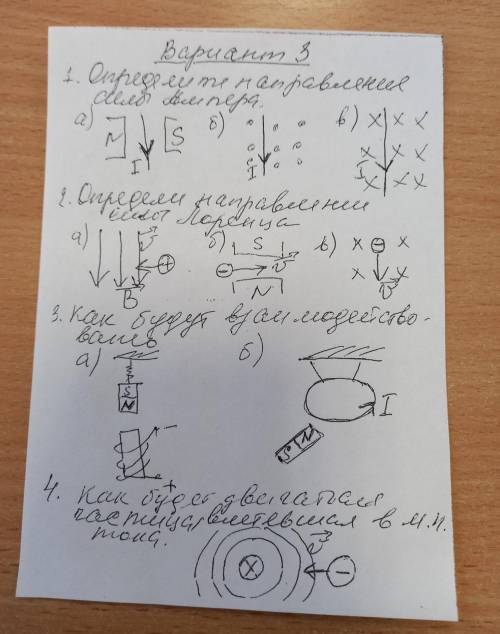 Вариант 3
1. Определити направление
силы Ампера.
а) N S I б) I в) x x x
x x x
I x x x
2. Определи направление
силы Лоренца
а) v + B б) S - v N в) x - x
x x v
3. Как будут взаимодейство-
вать
а) S N - + б) I S N
4. Как будет двигаться
частица влетевшая в м.п.
тока.
x v -